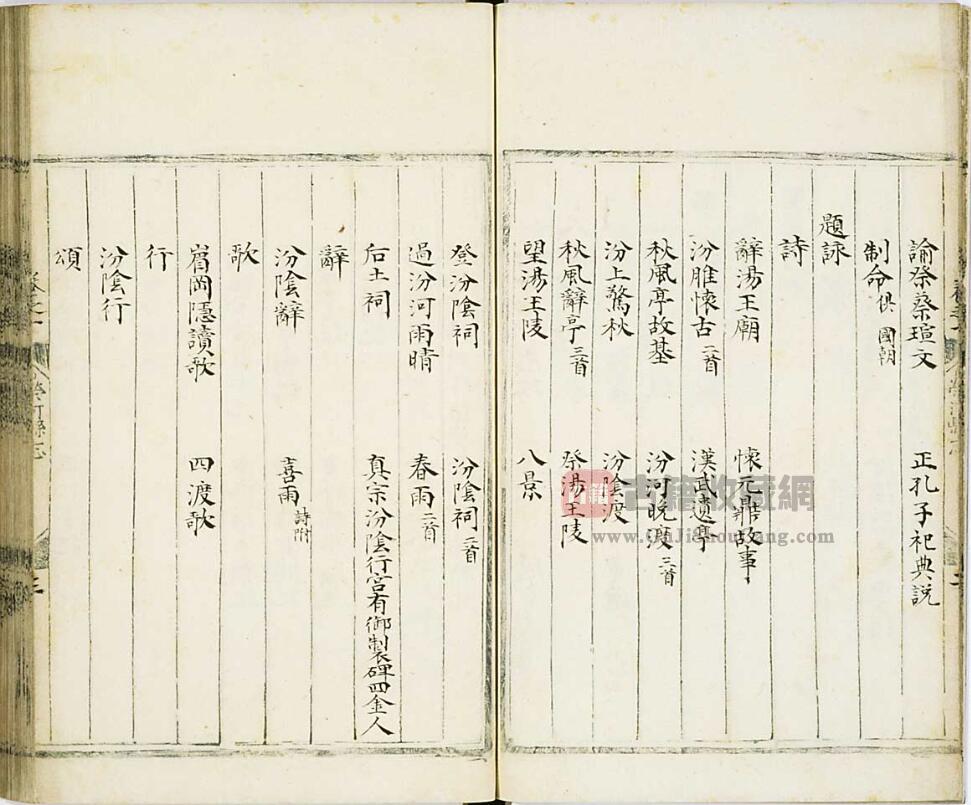 諭祭蔡瑄文　正孔子祀典説
制命俱國朝
題詠
詩
辭湯王廟　懷元鼎故事
汾脽懷古二首　漢武遺亭
秋風亭故基　汾河晚渡三首
汾上驚秋　汾陰渡
秋風辭亭三首　祭湯王陵
望湯王陵　八景
登汾陰祠　汾陰祠二首
過汾河雨晴　春雨二首
后土祠　真宗汾陰行宮有御製碑四金人
辭
汾陰辭　喜雨詩附
歌
眉岡隱讀歌　四渡歌
行
汾陰行
頌
榮河縣志
古籍收藏網